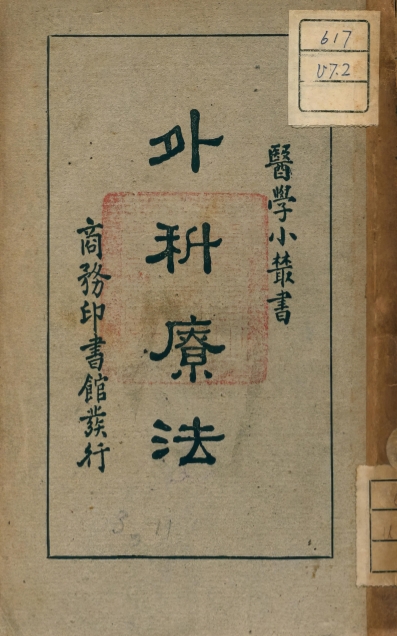 醫學小叢書
外科療法
商務印書館發行
617
V7.2
3 11
3